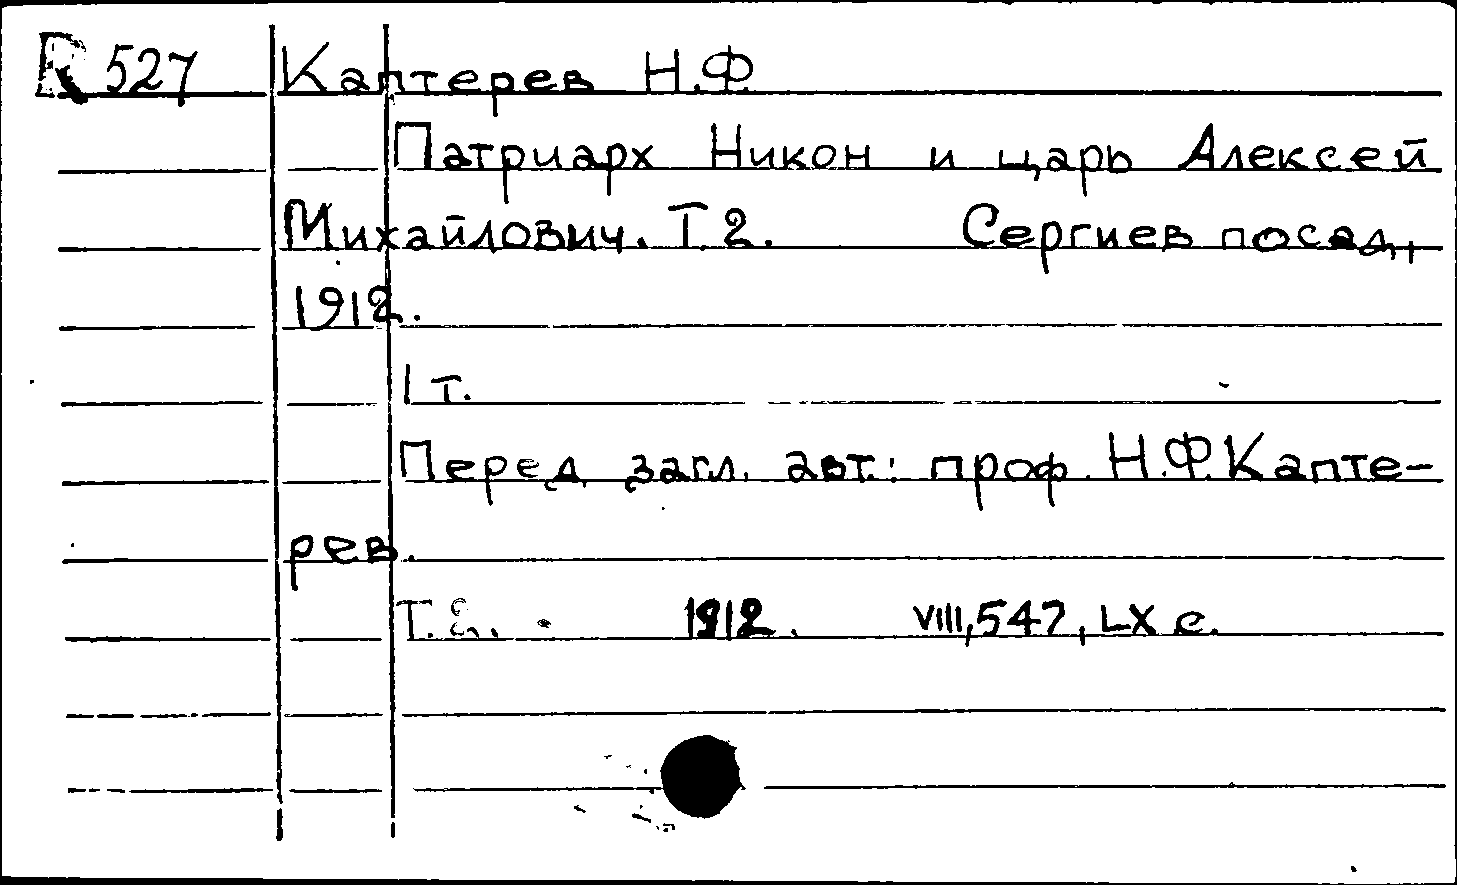 R 527 Каптерев Н.Ф.
Патриарх Никон и царь Алексей
Михайлович. Т. 2. Сергиев посад,
1912.
1 т.
Перед загл. авт.: проф. Н.Ф. Капте-
рев.
Т. 2. 1912. VIII, 547, LX с.